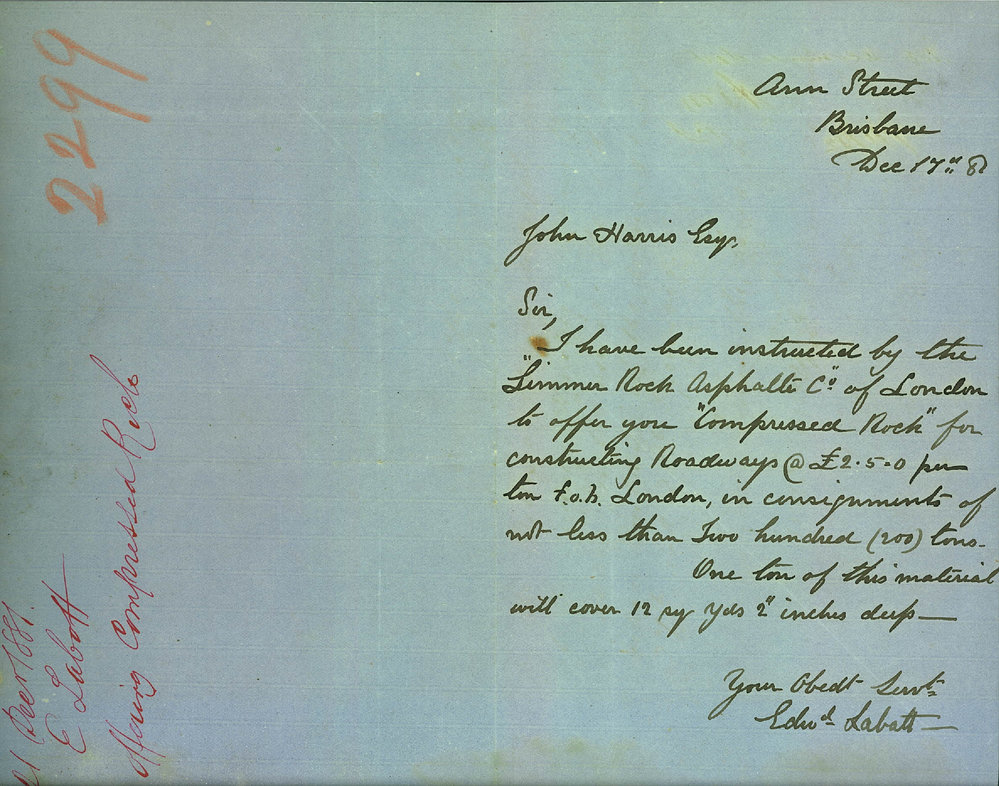 2299
Decr 1881.
E Labatt
Offering Compressed Rock
Ann Street
Brisbane
Dec 17th 81
John Harris Esq,
Sir,
I have been instructed by the
"Limmer Rock Asphalte Co" of London
to offer you "Compressed Rock" for
constructing Roadways @ £2.5.0 per
ton f.o.b. London, in consignments of
not less than Two hundred (200) tons.
One ton of this material
will cover 12 sq yds 2" inches deep—
Your Obedt Servt
Edwd Labatt—